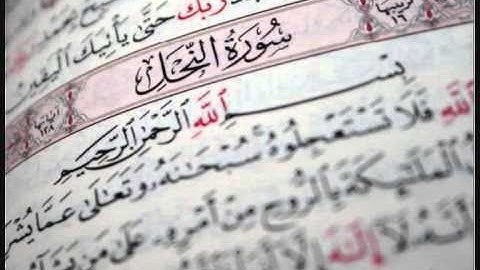 رَبَّكَ حَتَّىٰ يَأْتِيَكَ الْيَقِينُ
سُورَةُ النَّحْلِ
بِسْمِ اللَّهِ الرَّحْمَٰنِ الرَّحِيمِ
اللَّهِ فَلَا تَسْتَعْجِلُوهُ سُبْحَانَهُ وَتَعَالَىٰ عَمَّا
الْمَلَائِكَةَ بِالرُّوحِ مِنْ أَمْرِهِ عَلَىٰ مَنْ
أَنَّهُ لَا إِلَٰهَ إِلَّا أَنَا